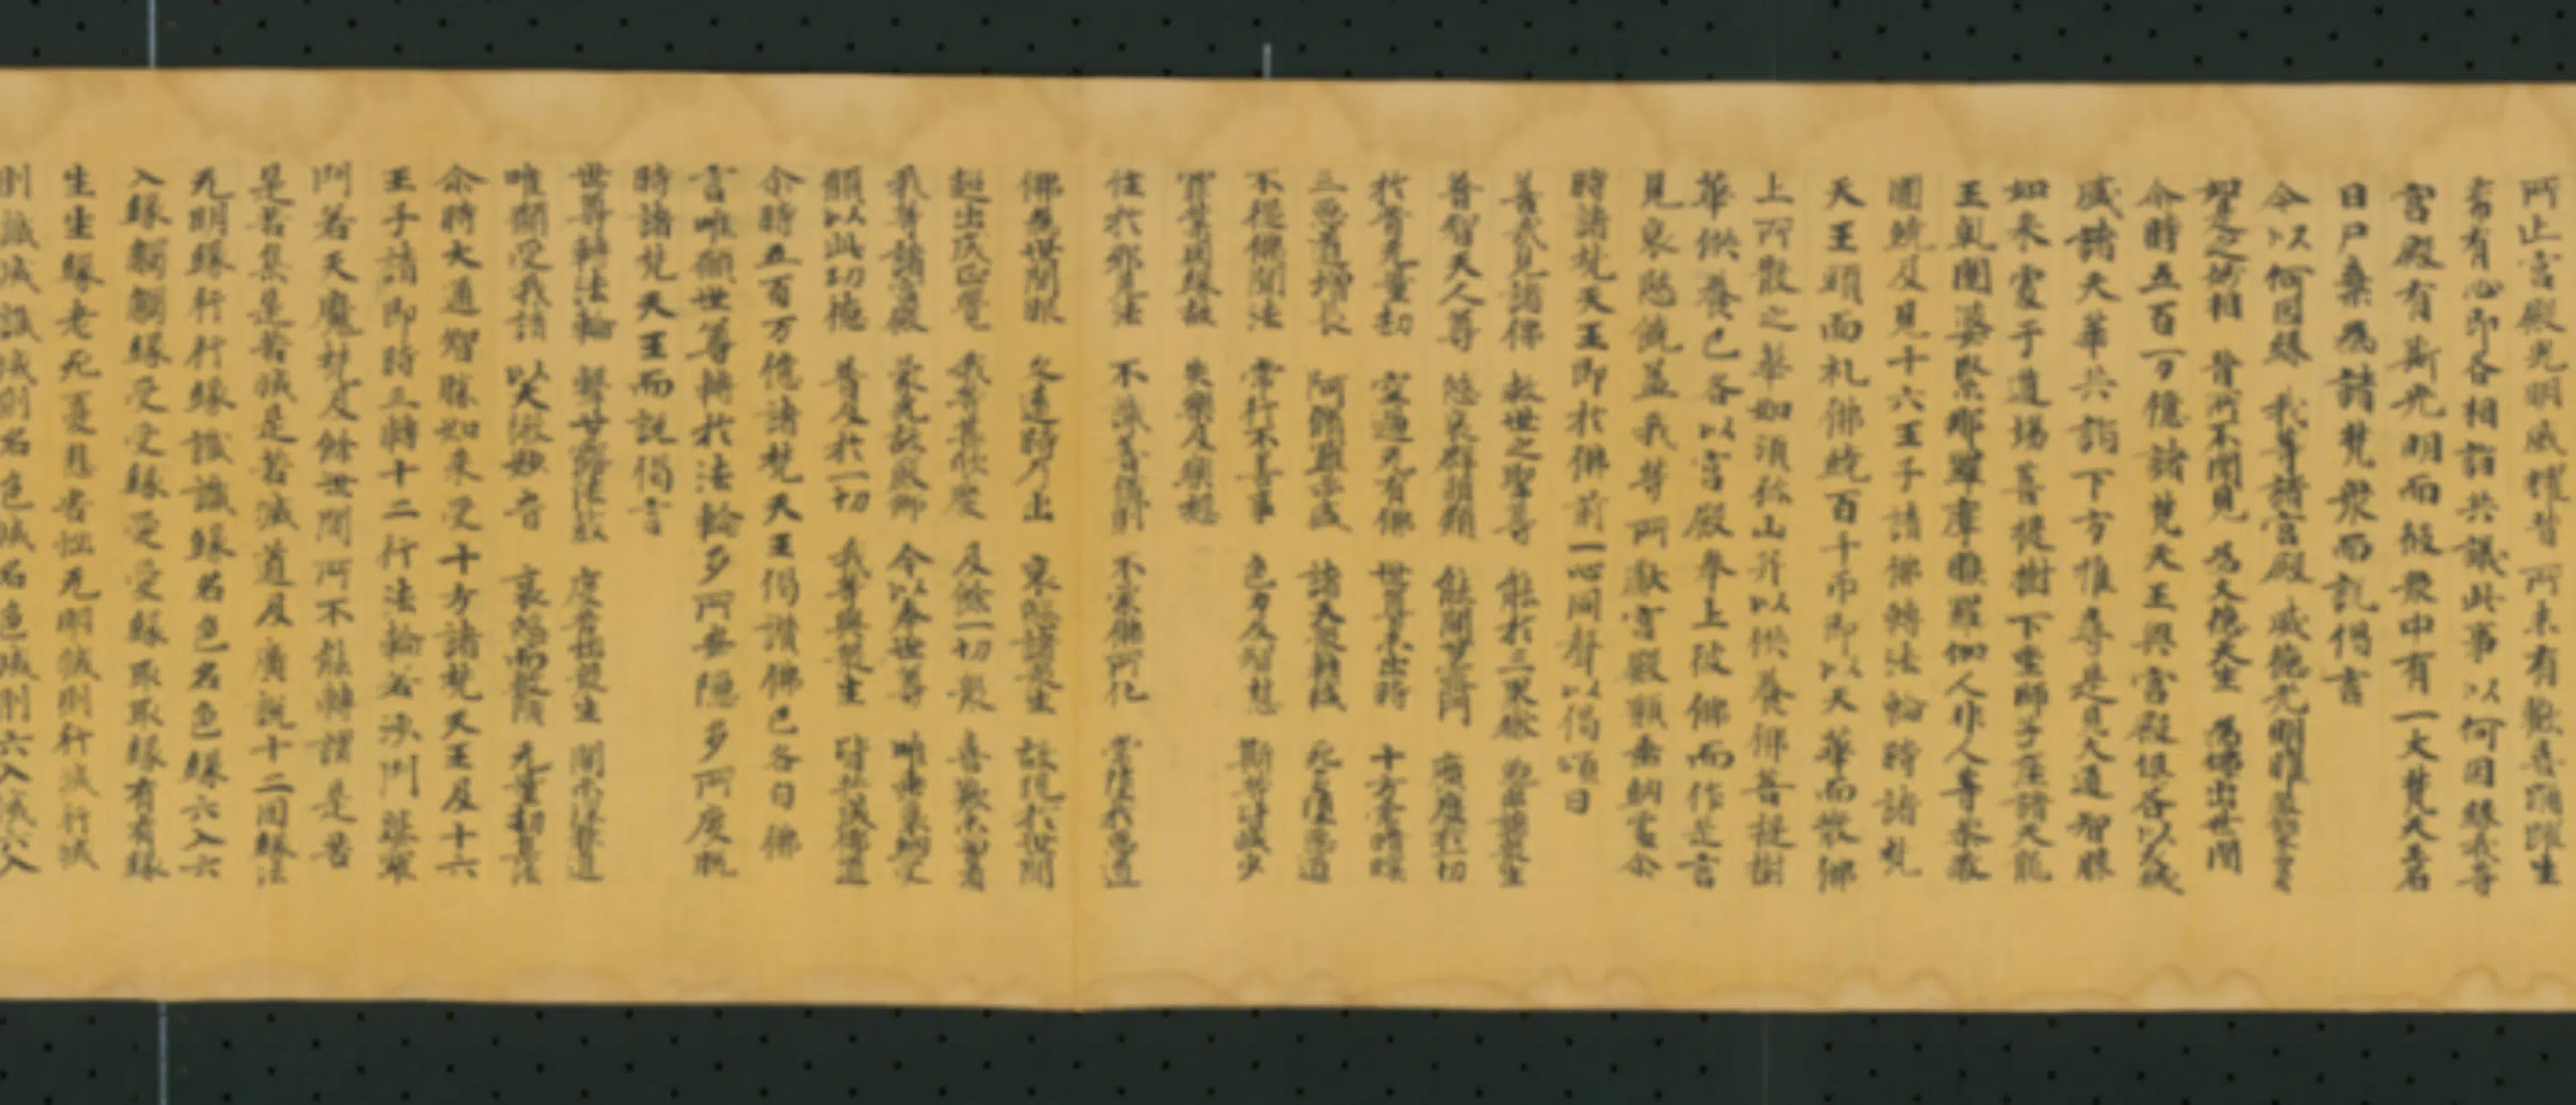 所止宮殿光明威耀昔所未有歡喜踊躍生
希有心即各相詣共議此事以何因緣我等
宮殿有斯光明而彼衆中有一大梵天王名
曰尸棄為諸梵衆而說偈言
今以何因緣 我等諸宮殿 威德光明曜 嚴飾未曾有
如是之妙相 昔所不聞見 為大德天生 為佛出世間
尒時五百万億諸梵天王與宮殿俱各以衣
裓盛諸天華共詣下方推尋是相見大通智勝
如来處于道場菩提樹下坐師子座諸天龍
王乹闥婆緊那羅摩睺羅伽人非人等恭敬
圍繞及見十六王子請佛轉法輪時諸梵
天王頭面礼佛繞百千帀即以天華而散佛
上所散之華如須弥山并以供養佛菩提樹
華供養已各以宮殿奉上彼佛而作是言
見哀愍饒益我等所獻宮殿願垂納處尒
時諸梵天王即於佛前一心同聲以偈頌曰
善哉見諸佛 救世之聖尊 能於三界獄 勉出諸衆生
普智天人尊 愍哀群萌類 能開甘露門 廣度於一切
於昔无量劫 空過无有佛 世尊未出時 十方常暗暝
三惡道增長 阿脩羅亦盛 諸天衆轉減 死多墮惡道
不從佛聞法 常行不善事 色力及智慧 斯等皆減少
罪業因緣故 失樂及樂想
住於邪見法 不識善儀則 不蒙佛所化 常墮於惡道
佛為世間眼 久遠時乃出 哀愍諸衆生 故現於世間
超出成正覺 我等甚欣慶 及餘一切衆 喜歎未曾有
我等諸宮殿 蒙光故嚴飾 今以奉世尊 唯垂哀納受
願以此功德 普及於一切 我等與衆生 皆共成佛道
尒時五百万億諸梵天王偈讚佛已各白佛
言唯願世尊轉於法輪多所安隱多所度脫
時諸梵天王而說偈言
世尊轉法輪 擊甘露法鼓 度苦惱衆生 開示涅槃道
唯願受我請 以大微妙音 哀愍而敷演 无量劫習法
尒時大通智勝如来受十方諸梵天王及十六
王子請即時三轉十二行法輪若沙門婆羅
門若天魔梵及餘世間所不能轉謂是苦
是苦集是苦滅是苦滅道及廣說十二因緣法
无明緣行行緣識識緣名色名色緣六入六
入緣觸觸緣受受緣愛愛緣取取緣有有緣
生生緣老死憂悲苦惱无明滅則行滅行滅
則識滅識滅則名色滅名色滅則六入滅六入